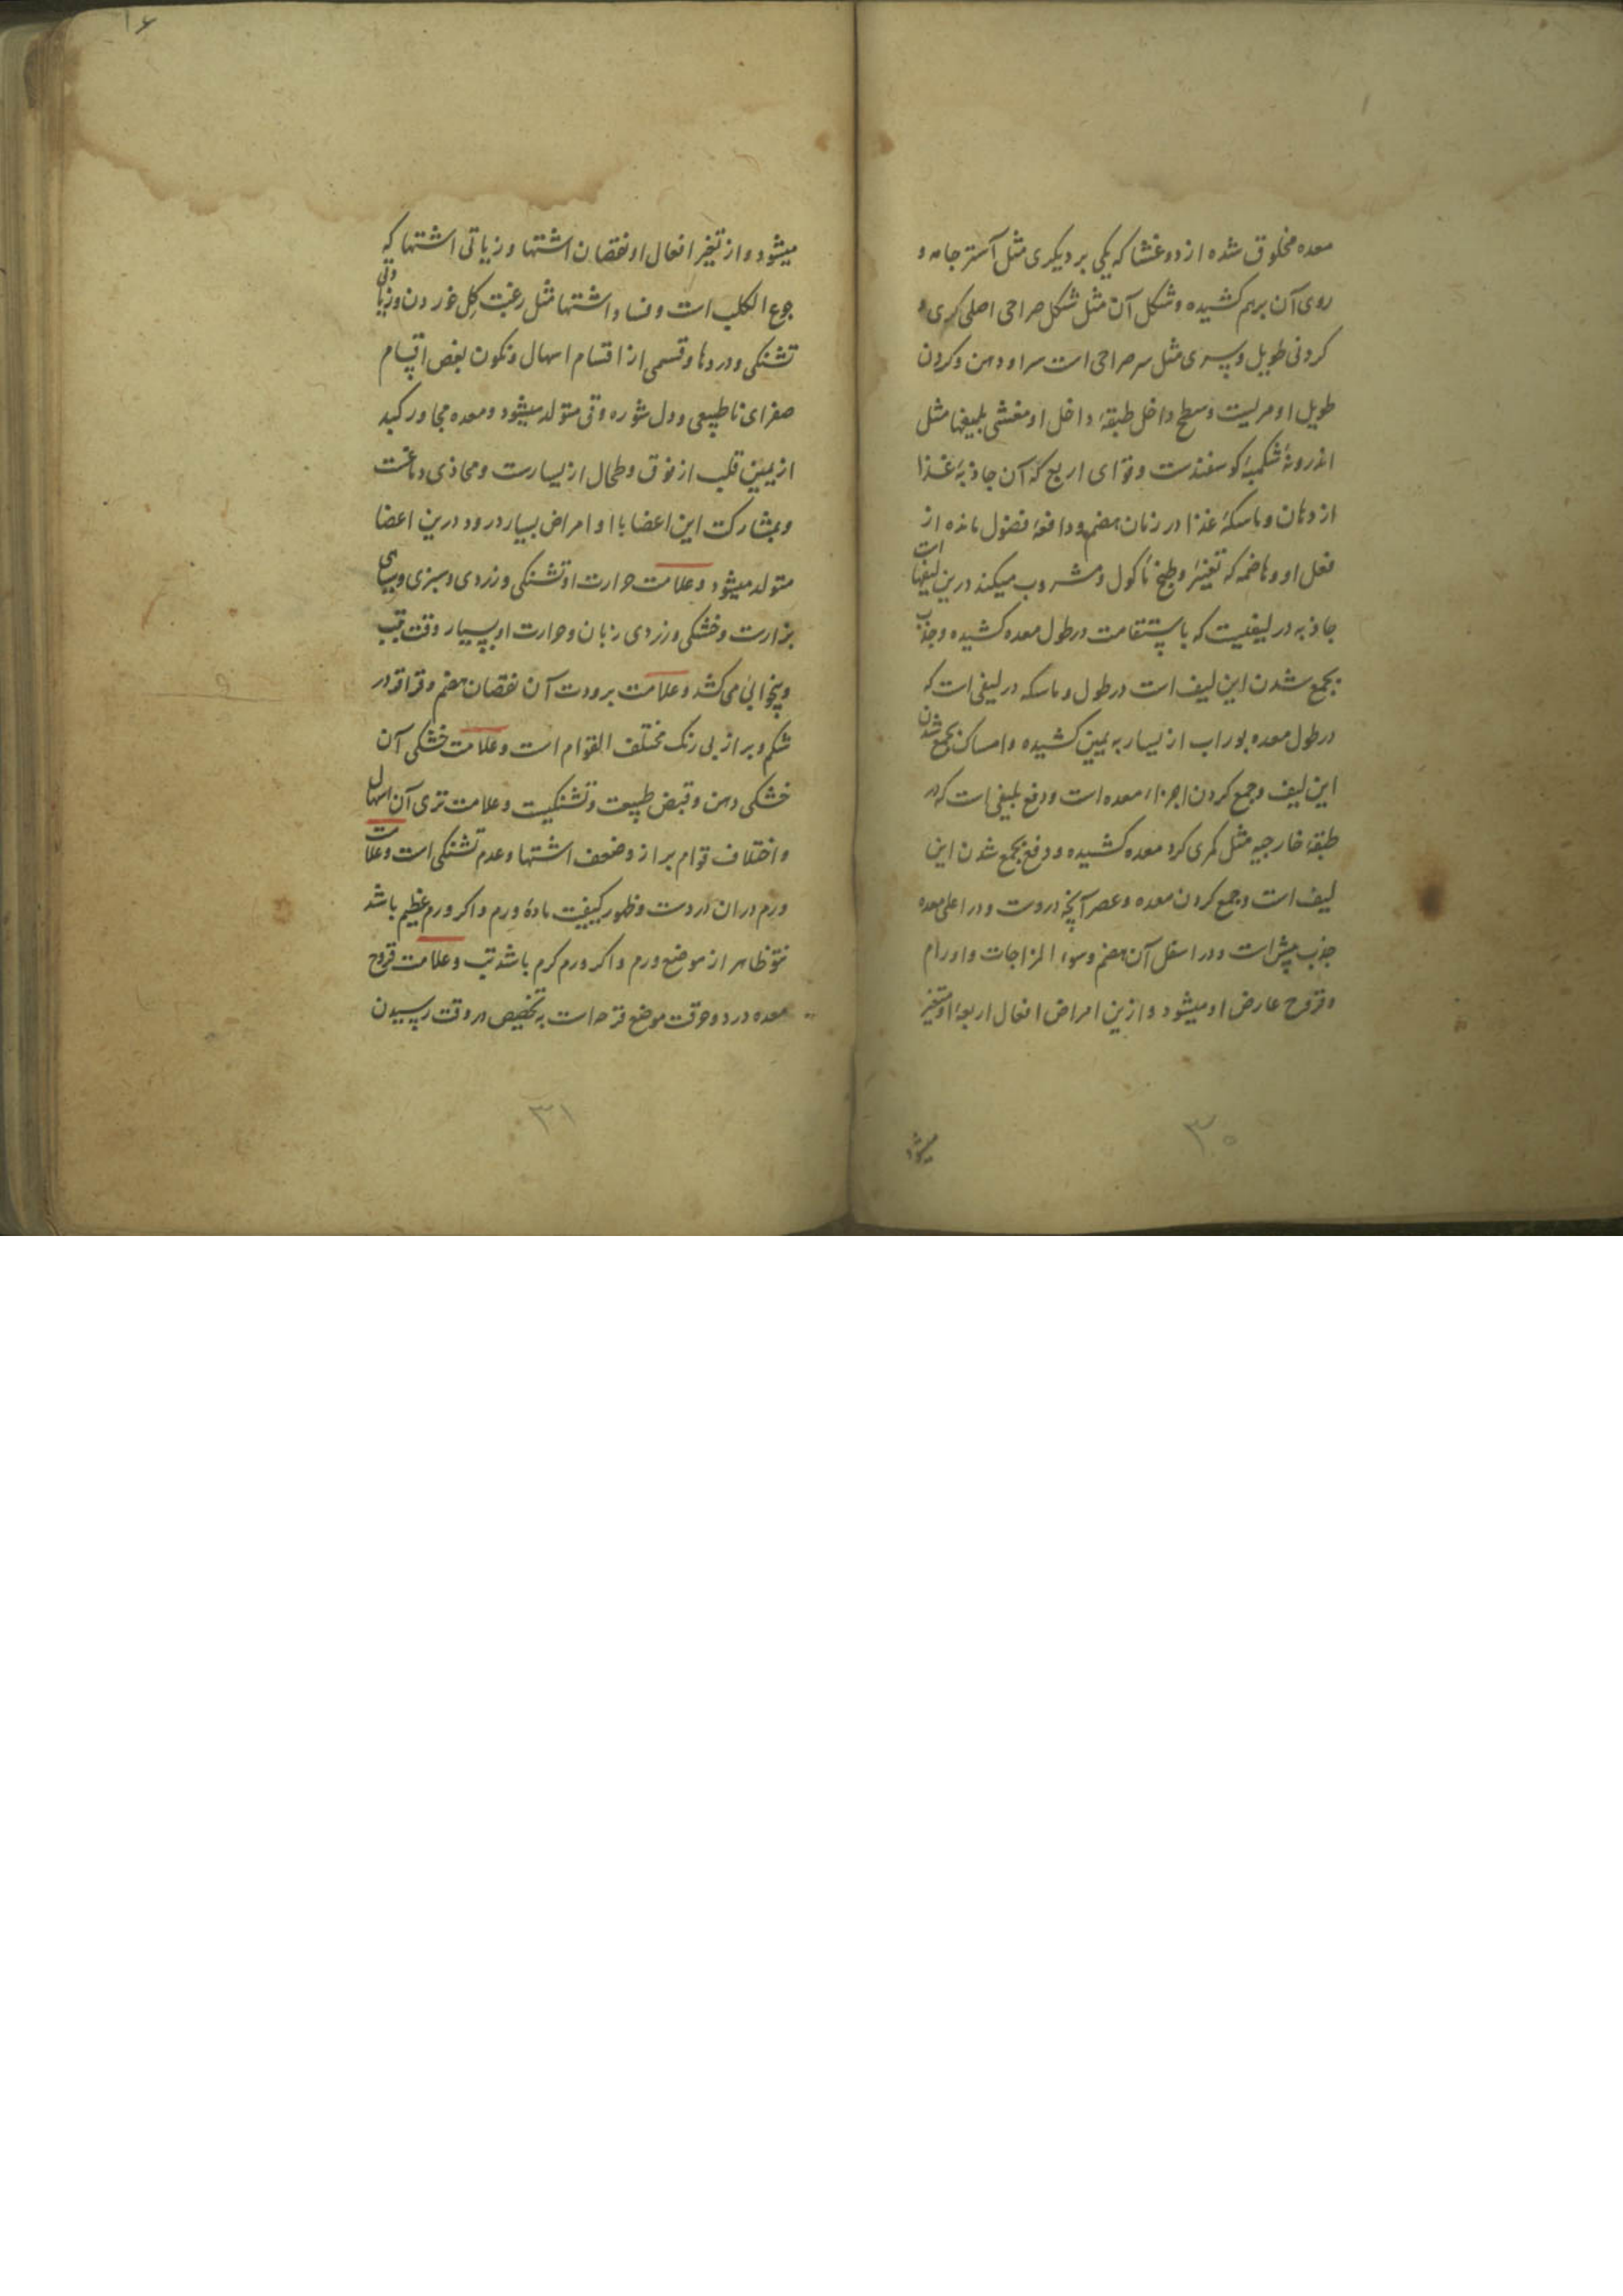 معده مخلوق شده از دو غشا که یکی بر دیکری مثل آستر جامه و
روی آن برهم کشیده و شکل آن مثل شکل صراحی اصلی کری و
کردنی طویل و سری مثل سر صراحی است سر او دهن و کردن
طویل او مریست و سطح داخل طبقهٔ داخل او مغشی بلیفها مثل
اندرونهٔ شکمبهٔ کوسفندست و قوای اربع که آن جاذبهٔ غذا
از دهان و ماسکهٔ غذا در زمان هضم و دافعهٔ فضول مانده از
فعل او و هاضمه که تغییر و طبخ ماکول و مشروب میکند درین لیفهاست
جاذبه در لیفیست که باستقامت در طول معده کشیده و جذب
بجمع شدن این لیف است در طول و ماسکه در لیفی است که
در طول معده بوراب از یسار به یمین کشیده و امساک بجمع شدن
این لیف و جمع کردن اجزاء معده است و دفع بلیفی است که در
طبقهٔ خارجیه مثل کمری کرد معده کشیده و دفع بجمع شدن این
لیف است و جمع کردن معده و عصر آنچه دروست و در اعلی معده
جذب بیش است و در اسفل آن هضم و سوء المزاجات و اورام
و قروح عارض او میشود و ازین امراض افعال اربعهٔ او متغیر
میشود
۳۰
۱۶
میشود و از تغیر افعال او نقصان اشتها و زیاتی اشتها که
جوع الکلب است و فساد اشتها مثل رغبت کل خوردن و زیادتی
تشنکی و دردها و قسمی از اقسام اسهال و تکون بعض اقسام
صفرای ناطبیعی و دل شوره و قی متولد میشود و معده مجاور کبد
از یمین قلب از فوق و طحال از یسارست و محاذی دماغست
و بمشارکت این اعضا با او امراض بسیار درو و درین اعضا
متولد میشود و علامت حرارت او تشنکی و زردی و سبزی و سیاهی
برازست و خشکی و زردی زبان و حرارت او بسیار وقت بتب
و بیخوابی می کشد و علامت برودت آن نقصان هضم و قراقر در
شکم و براز بی رنک مختلف القوام است و علامت خشکی آن
خشکی دهن و قبض طبیعت و تشنکیست و علامت تری آن اسهال
و اختلاف قوام براز و ضعف اشتها و عدم تشنکی است و علامت
ورم دران دردست و ظهور کیفیت مادهٔ ورم و اکر ورم عظیم باشد
نتو ظاهر از موضع ورم و اکر ورم کرم باشد تب و علامت قروح
معده درد و حرقت موضع قرحه است به تخصیص در وقت رسیدن
۳۱